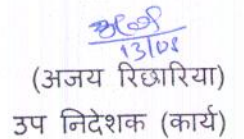 13/08
(अजय रिछारिया)
उप निदेशक (कार्य)